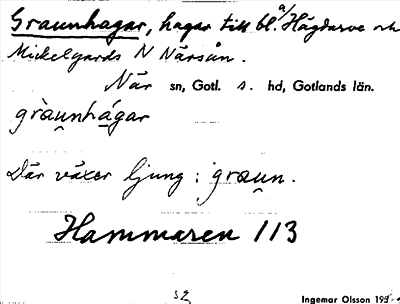 Graunhagar, hagar till bl. a/ Hägdarve och
Mickelgards N Närsån.
När sn, Gotl. s. hd, Gotlands län.
gràu̯nhá̱gar
Där växer ljung: grau̯n.
Hammaren 113
52
Ingemar Olsson 195